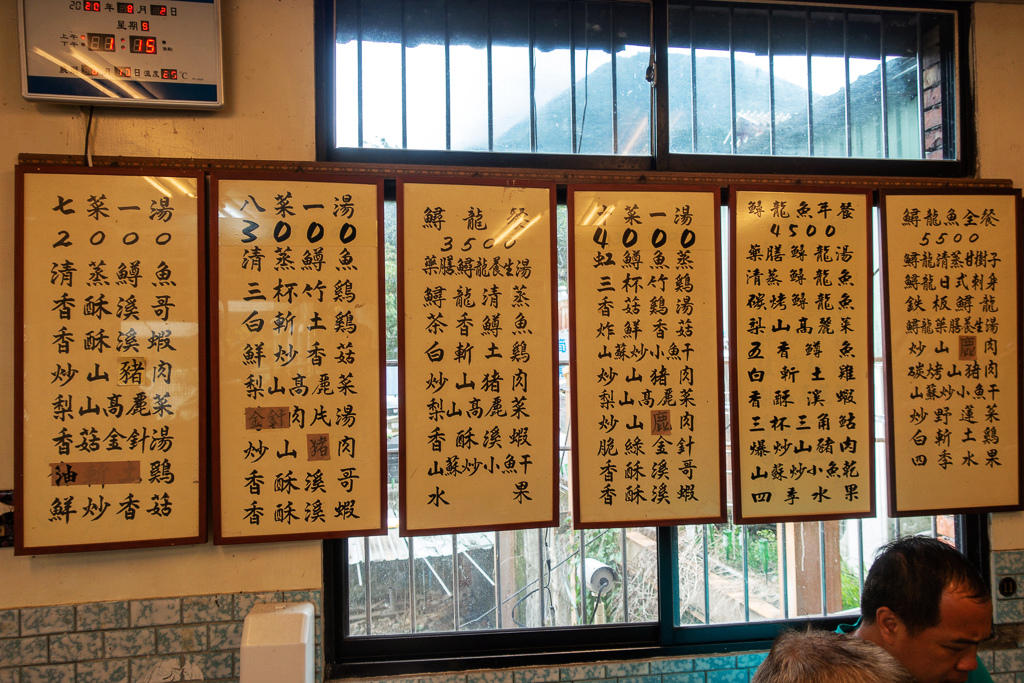 2020年8月2日
星期
上午
下午 1 15
農曆 日溫度 ℃
七菜一湯
2000
清蒸鱒魚
香酥溪哥
香酥溪蝦
炒山豬肉
梨山高麗菜
香菇金針湯
油 雞
鮮炒香菇
八菜一湯
3000
清蒸鱒魚
三杯竹雞
白斬土雞
鮮炒香菇
梨山高麗菜
金針肉片湯
炒山豬肉
香酥溪哥
香酥溪蝦
鱘龍餐
3500
藥膳鱘龍養生湯
鱘龍清蒸
茶香鱒魚
白斬土雞
炒山猪肉
梨山高麗菜
香酥溪蝦
山蘇炒小魚干
水果
七菜一湯
4000
虹鱒魚蒸
三杯竹雞
香菇雞湯
炸鮮香菇
山蘇炒小魚干
炒山猪肉
梨山高麗菜
炒山鹿肉
脆綠金針
香酥溪哥
香酥溪蝦
鱘龍魚年餐
4500
藥膳鱘龍湯
清蒸鱘龍魚
碳烤鱘龍魚
梨山高麗菜
五香鱒魚
白斬土雞
香酥溪蝦
三杯三角鮎
爆炒山豬肉
山蘇炒小魚乾
四季水果
鱘龍魚全餐
5500
鱘龍清蒸甘樹子
鱘龍日式刺身
鉄板鱘龍
鱘龍藥膳養生湯
炒山鹿肉
碳烤山猪肉
山蘇炒小魚干
炒野蓮菜
白斬土雞
四季水果